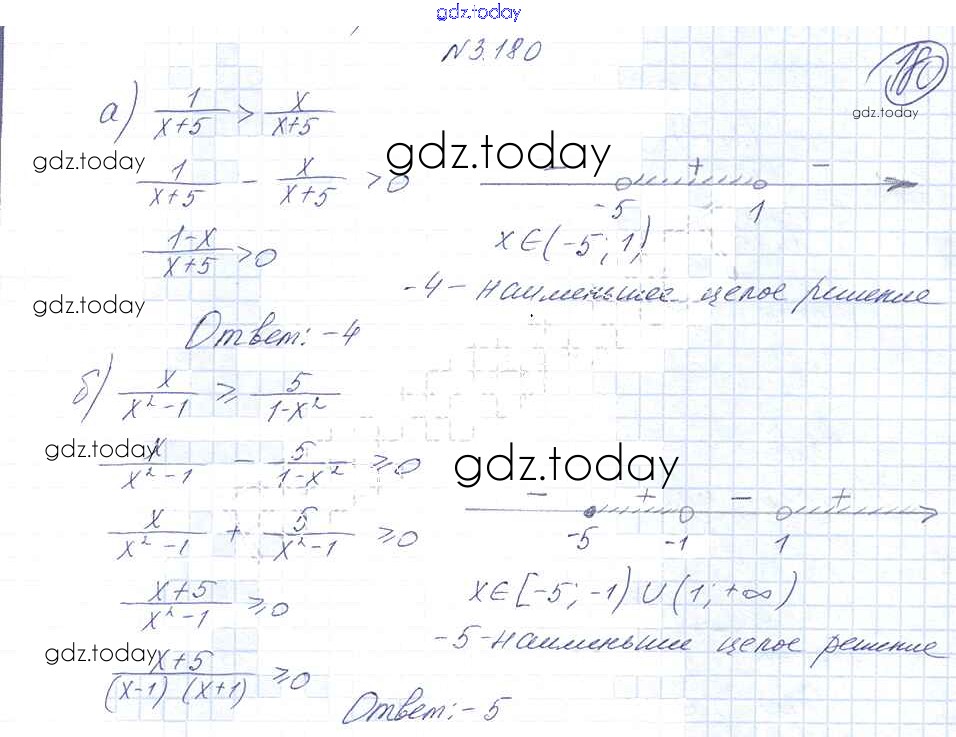 gdz.today
N3.180
180
gdz.today
а) 1/(x+5) > x/(x+5)
gdz.today
gdz.today
1/(x+5) - x/(x+5) > 0
- + -
-5 1
(1-x)/(x+5) > 0
x∈(-5; 1)
-4 - наименьшее целое решение
gdz.today
Ответ: -4
б) x/(x²-1) ≥ 5/(1-x²)
gdz.today
gdz.today
x/(x²-1) - 5/(1-x²) ≥ 0
- + - +
-5 -1 1
x/(x²-1) + 5/(x²-1) ≥ 0
(x+5)/(x²-1) ≥ 0
x∈[-5; -1) ∪ (1; +∞)
-5 - наименьшее целое решение
gdz.today
(x+5)/((x-1)(x+1)) ≥ 0
Ответ: -5